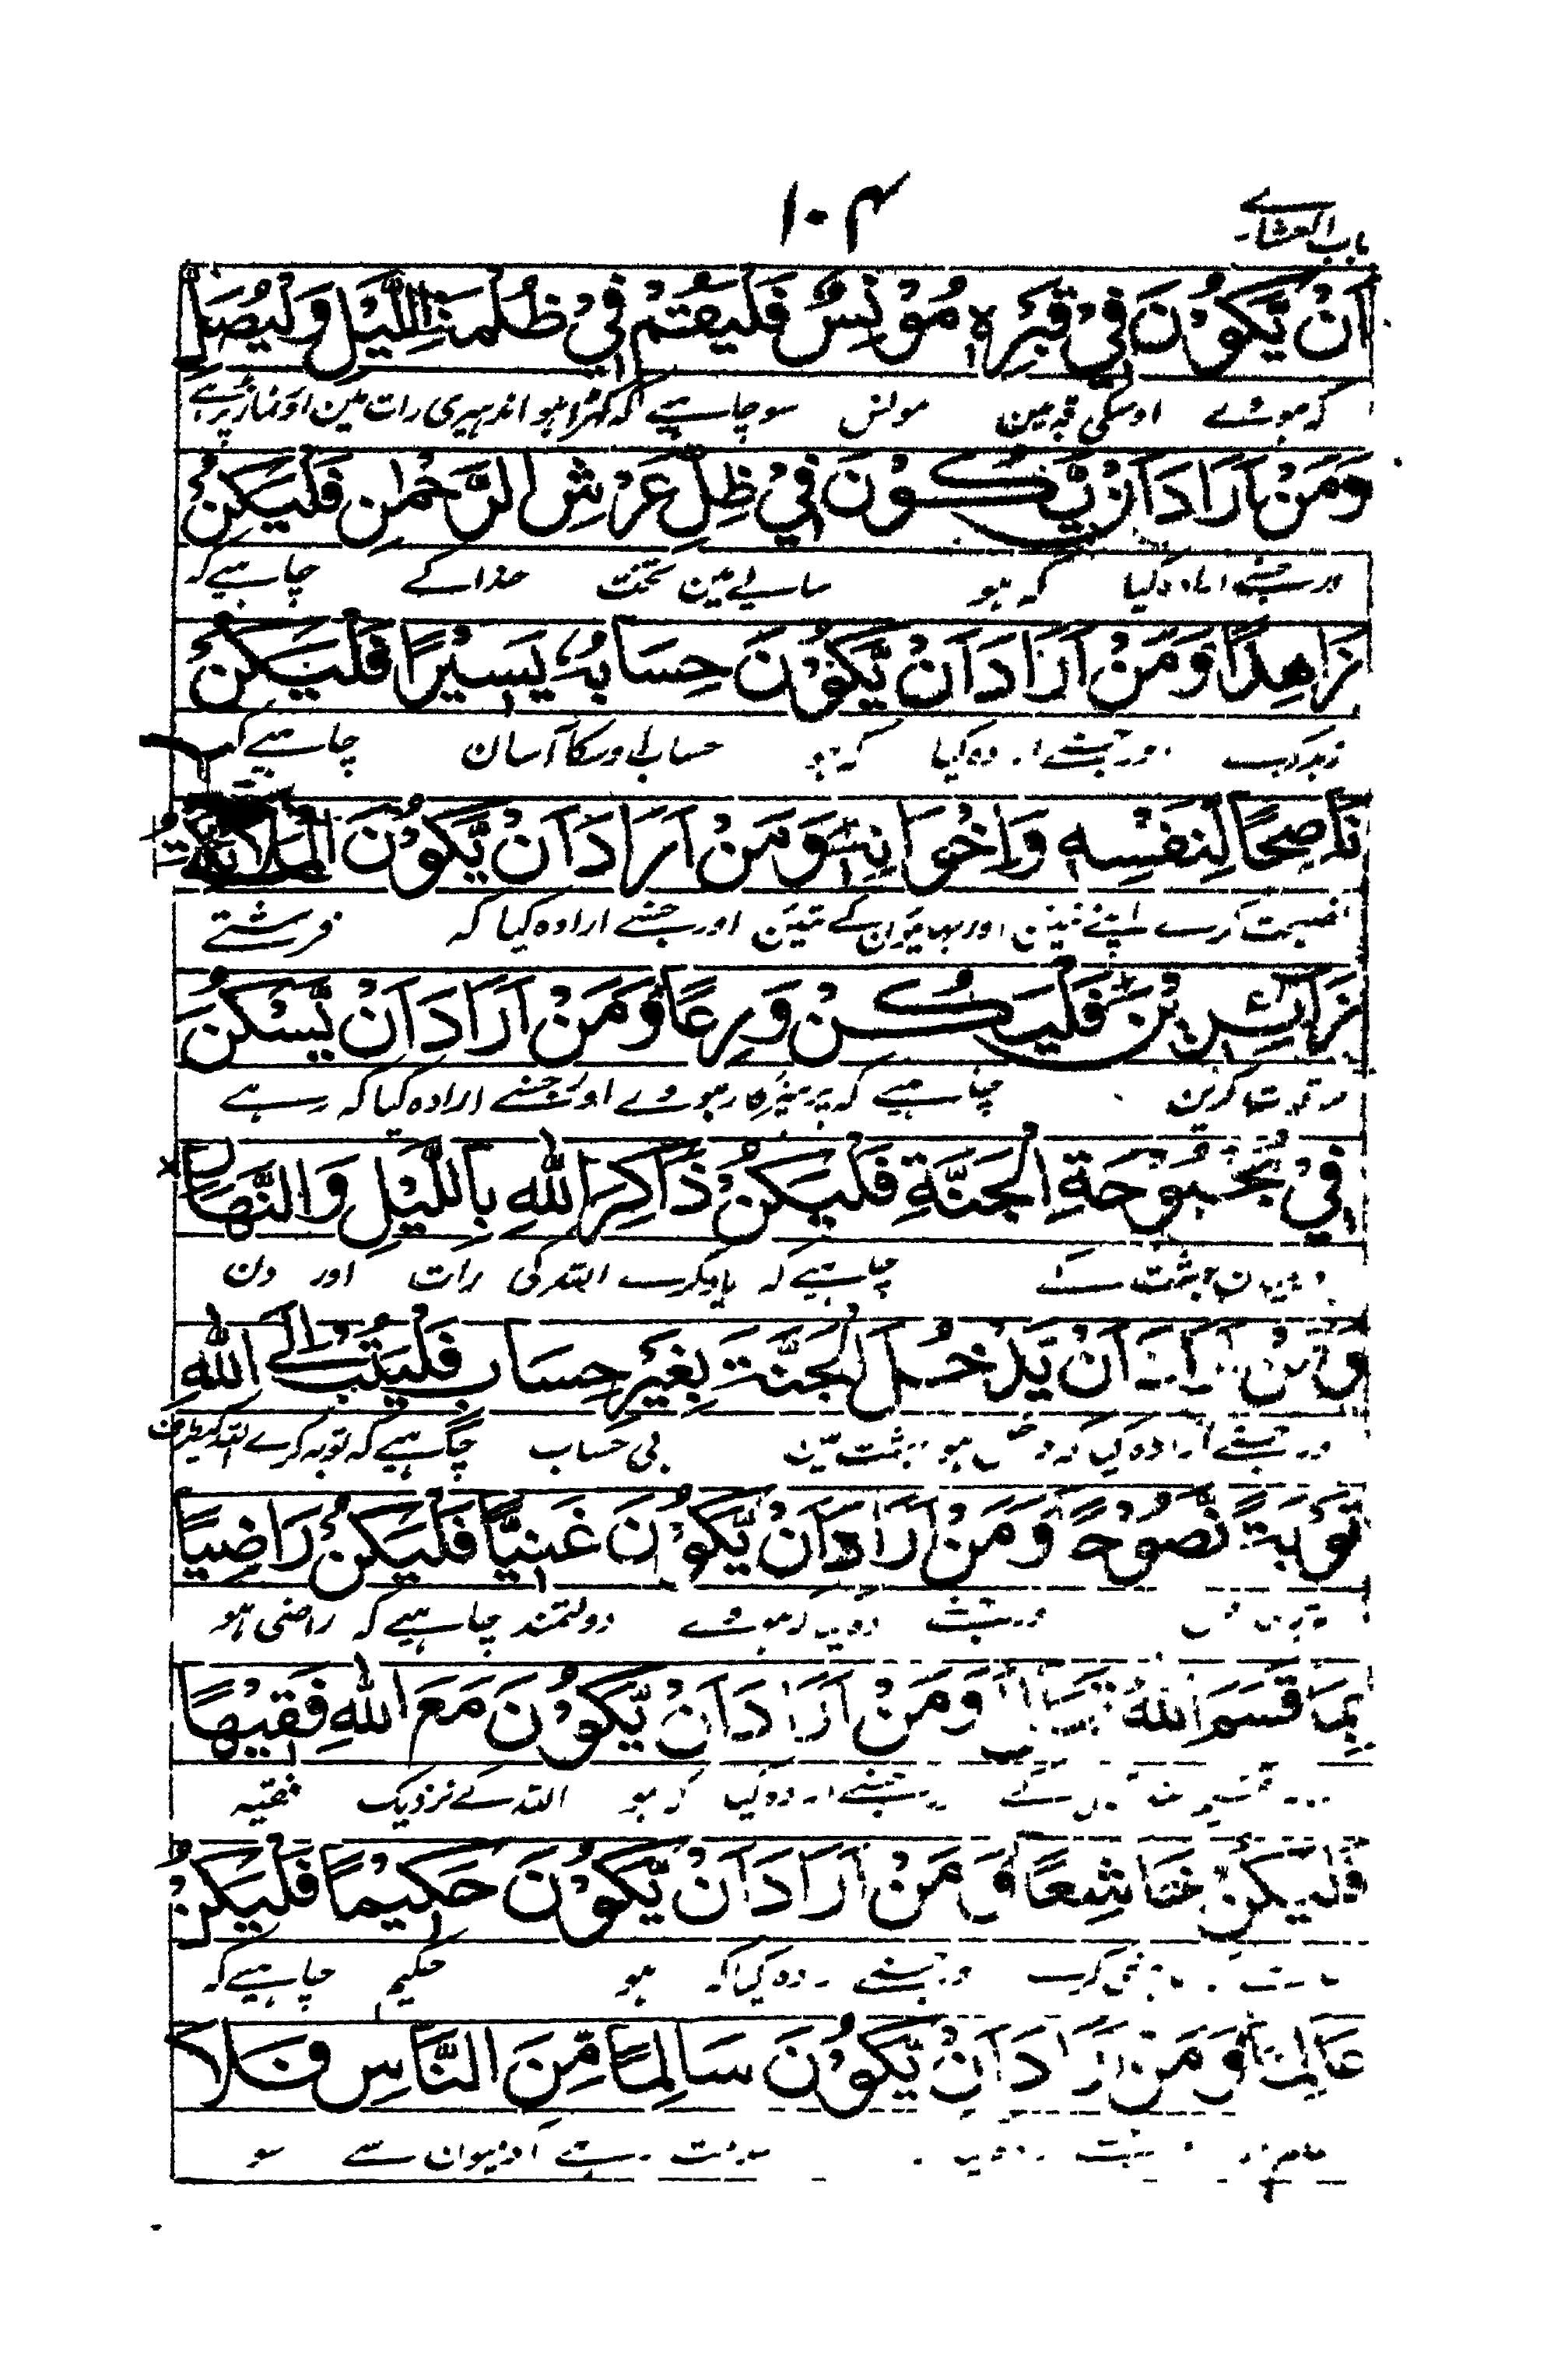 باب العشا
١٠٤
اَنْ يَّكُوْنَ فِيْ قَبْرِهٖ مُوْنِسٌ فَلْيَقُمْ فِيْ ظُلْمَةِ اللَّيْلِ وَلْيُصَلِّ
كہ ہووے اوسكی قبر مین مونس سو چاہیے كہ كھڑا ہو اندہیری رات مین اور نماز پڑہے
وَمَنْ اَرَادَ اَنْ يَّكُوْنَ فِيْ ظِلِّ عَرْشِ الرَّحْمٰنِ فَلْيَكُنْ
ور جسنے ارادہ كیا كہ ہو سایے مین تحت خدا كے چاہیے كہ
زَاهِدًا وَمَنْ اَرَادَ اَنْ يَّكُوْنَ حِسَابُهٗ يَسِيْرًا فَلْيَكُنْ
ور جسنے كیا كہ ہو حساب اوسكا آسان چاہیے كہ
نَاصِحًا لِنَفْسِهٖ وَاِخْوَانِهٖ وَمَنْ اَرَادَ اَنْ يَّكُوْنَ الْمَلَائِكَةُ
نصیحت كرے اپنے اور بھایون كے تئین اور جسنے ارادہ كیا كہ فرشتے
زَائِرِيْنَ فَلْيَكُنْ وَرِعًا وَمَنْ اَرَادَ اَنْ يَّسْكُنَ
كرین چاہیے كہ پرہیزگار ہووے اور جسنے ارادہ كیا كہ رہے
فِيْ بُحْبُوْحَةِ الْجَنَّةِ فَلْيَكُنْ ذَاكِرَ اللّٰهِ بِاللَّيْلِ وَالنَّهَارِ
بہشت كے چاہیے كہ یاد كرے اللہ كی رات اور دن
وَمَنْ اَرَادَ اَنْ يَّدْخُلَ الْجَنَّةَ بِغَيْرِ حِسَابٍ فَلْيَتُبْ اِلَى اللّٰهِ
ور جسنے ارادہ كیا كہ ہو بہشت مین بی حساب چاہیے كہ توبہ كرے اللہ كیطرف
تَوْبَةً نَّصُوْحًا وَمَنْ اَرَادَ اَنْ يَّكُوْنَ غَنِيًّا فَلْيَكُنْ رَاضِيًا
ہووے دولتمند چاہیے كہ راضی ہو
بِمَا قَسَمَ اللّٰهُ وَمَنْ اَرَادَ اَنْ يَّكُوْنَ مَعَ اللّٰهِ فَقِيْهًا
جسنے كیا كہ ہو اللہ كے نزدیك فقیہ
فَلْيَكُنْ خَاشِعًا وَمَنْ اَرَادَ اَنْ يَّكُوْنَ حَكِيْمًا فَلْيَكُنْ
ور جسنے كیا كہ ہو حكیم چاہیے كہ
عَالِمًا وَمَنْ اَرَادَ اَنْ يَّكُوْنَ سَالِمًا مِّنَ النَّاسِ فَلَا
رہے آدمیون سے سو